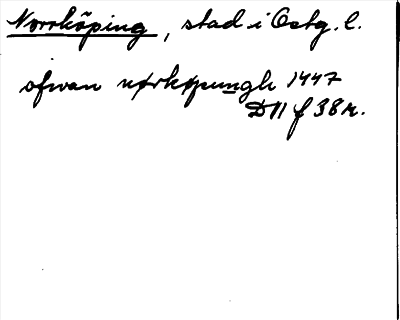 Norrköping, stad i Östg. l.
ofwan nørkøpungh 1447
D11 f 38r.